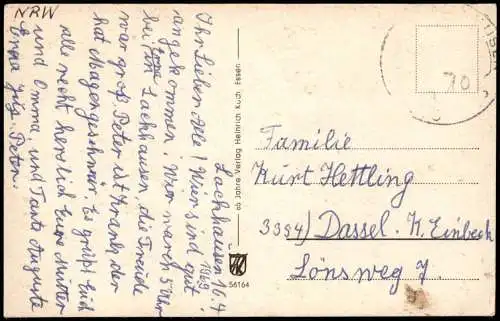 NRW
Lackhausen 16.4
1969.
Ihr Lieben alle! Wir sind gut
angekommen. Wir waren 5 Uhr
bei in Lackhausen, die Freude
war groß. Peter ist krank der
hat Magengeschwür. Es grüßt Euch
alle recht herzlich Eure Mutter
und Omma, und Tante Auguste
Peter.
ob Jahre Verlag Heinrich Koch Essen
56164
70
Familie
Kurt Hettling
3354) Dassel. K. Einbeck
Lönsweg 7.